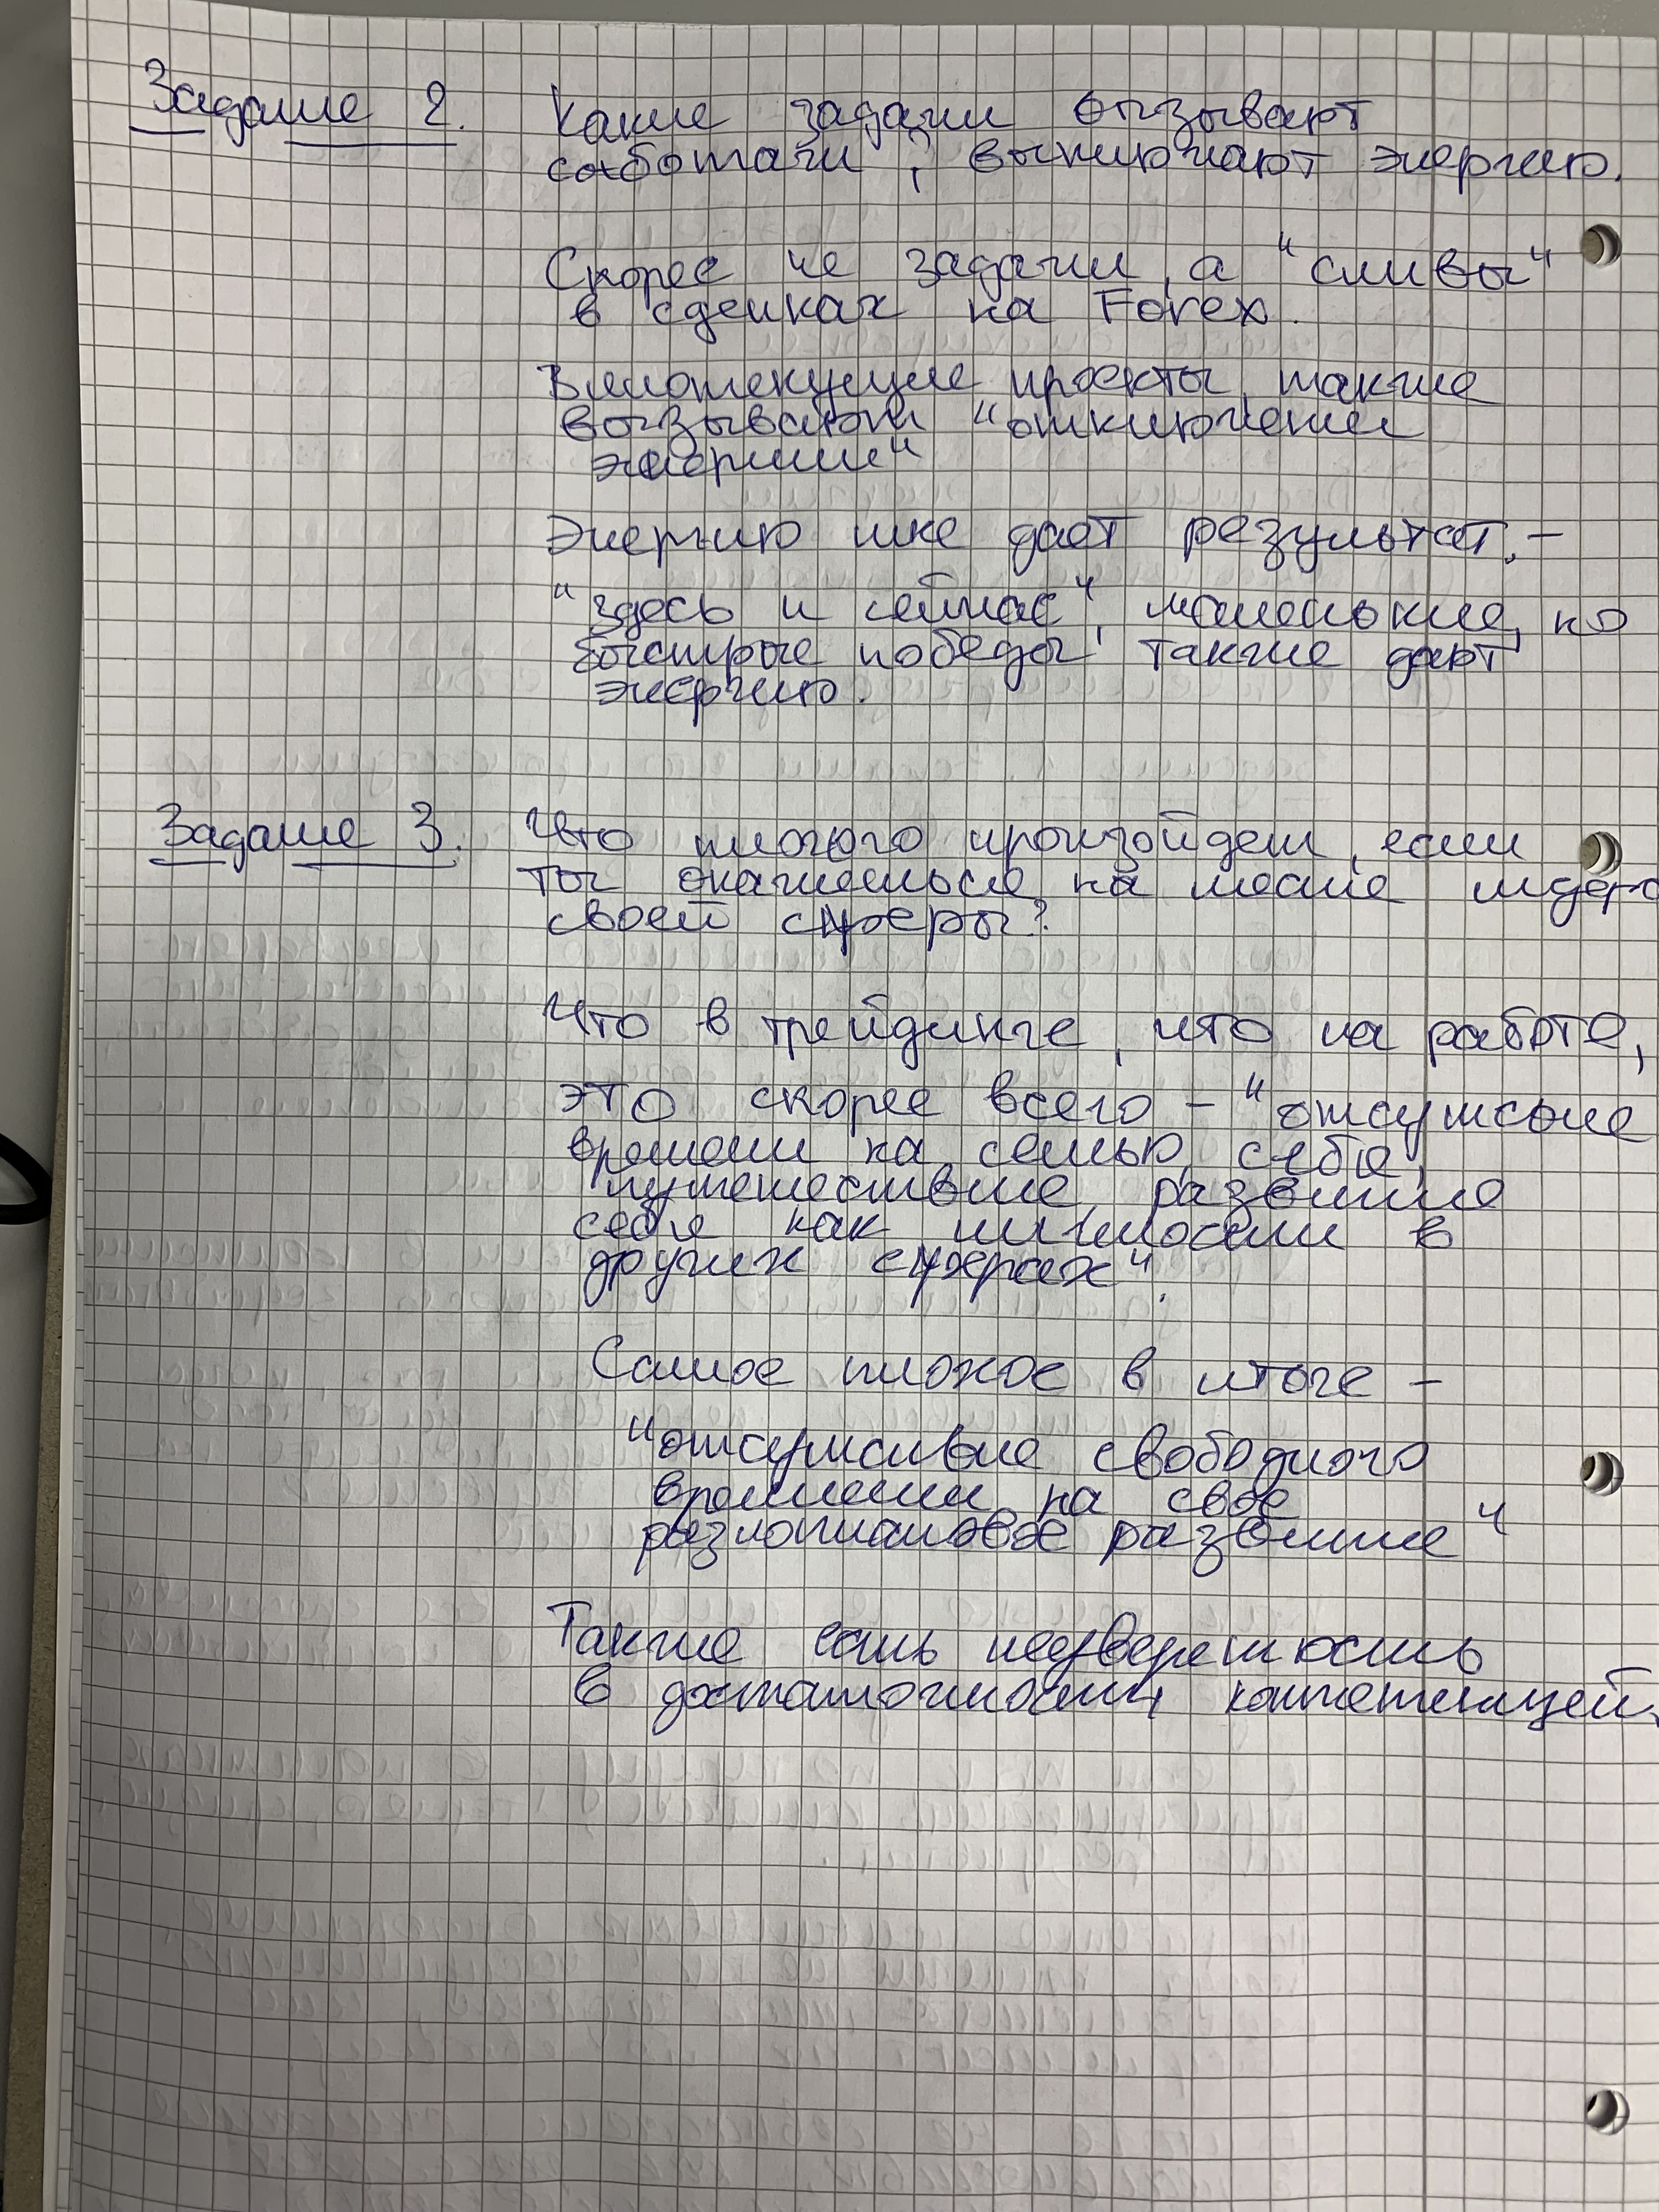 Задание 2. Какие задачи вызывают
саботаж, выключают энергию.
Скорее не задачи, а "сливы"
в сделках на Forex.
Вялотекущие проекты также
вызывают "отключение
энергии"
Энергию мне дает результат, -
"здесь и сейчас", маленькие, но
быстрые победы также дают
энергию.
Задание 3. Что плохого произойдет, если
ты окажешься на месте лидера
своей сферы?
Что в трейдинге, что на работе,
это скорее всего - "отсутствие
времени на семью, себя,
путешествие, развитие
себя как личности в
других сферах".
Самое плохое в итоге -
"отсутствие свободного
времени на свое
разноплановое развитие"
Также есть неуверенность
в достаточности компетенций.